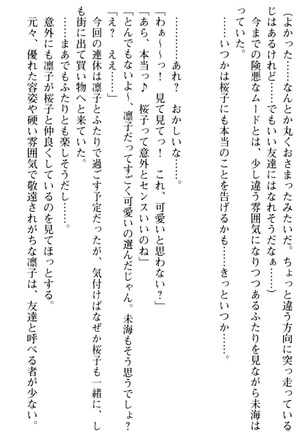 (よかった……なんとか丸くおさまったみたいだ。ちょっと違う方向に突っ走っている
じはあるけれど……でもいい友達にはなれそうだなぁ……)
　今までの険悪なムードとは、少し違う雰囲気になりつつあるふたりを見ながら未海は
っていた。
　……いつかは桜子にも本当のことを告げられるかも……きっといつか……。
　………あれ？　おかしいな……。
「わぁ〜〜っ！　見て見てっ！　これ、可愛いと思わない？」
「あら、本当っ♪　桜子って意外とセンスいいのね」
「とんでもないよ〜、凛子だってすごく可愛いの選んだじゃん。未海もそう思うでしょ？
「え？　ええ……」
　今回の連休は凛子とふたりで過ごす予定だったが、気付けばなぜか桜子も一緒に、し
も街に出て買い物へと来ていた。
　……まあでもふたりとも楽しそうだし……。
　意外にも凛子が桜子と仲良くしているのを見てほっとする。
　元々、優れた容姿や硬い雰囲気で敬遠されがちな凛子は、友達と呼べる者が少ない。